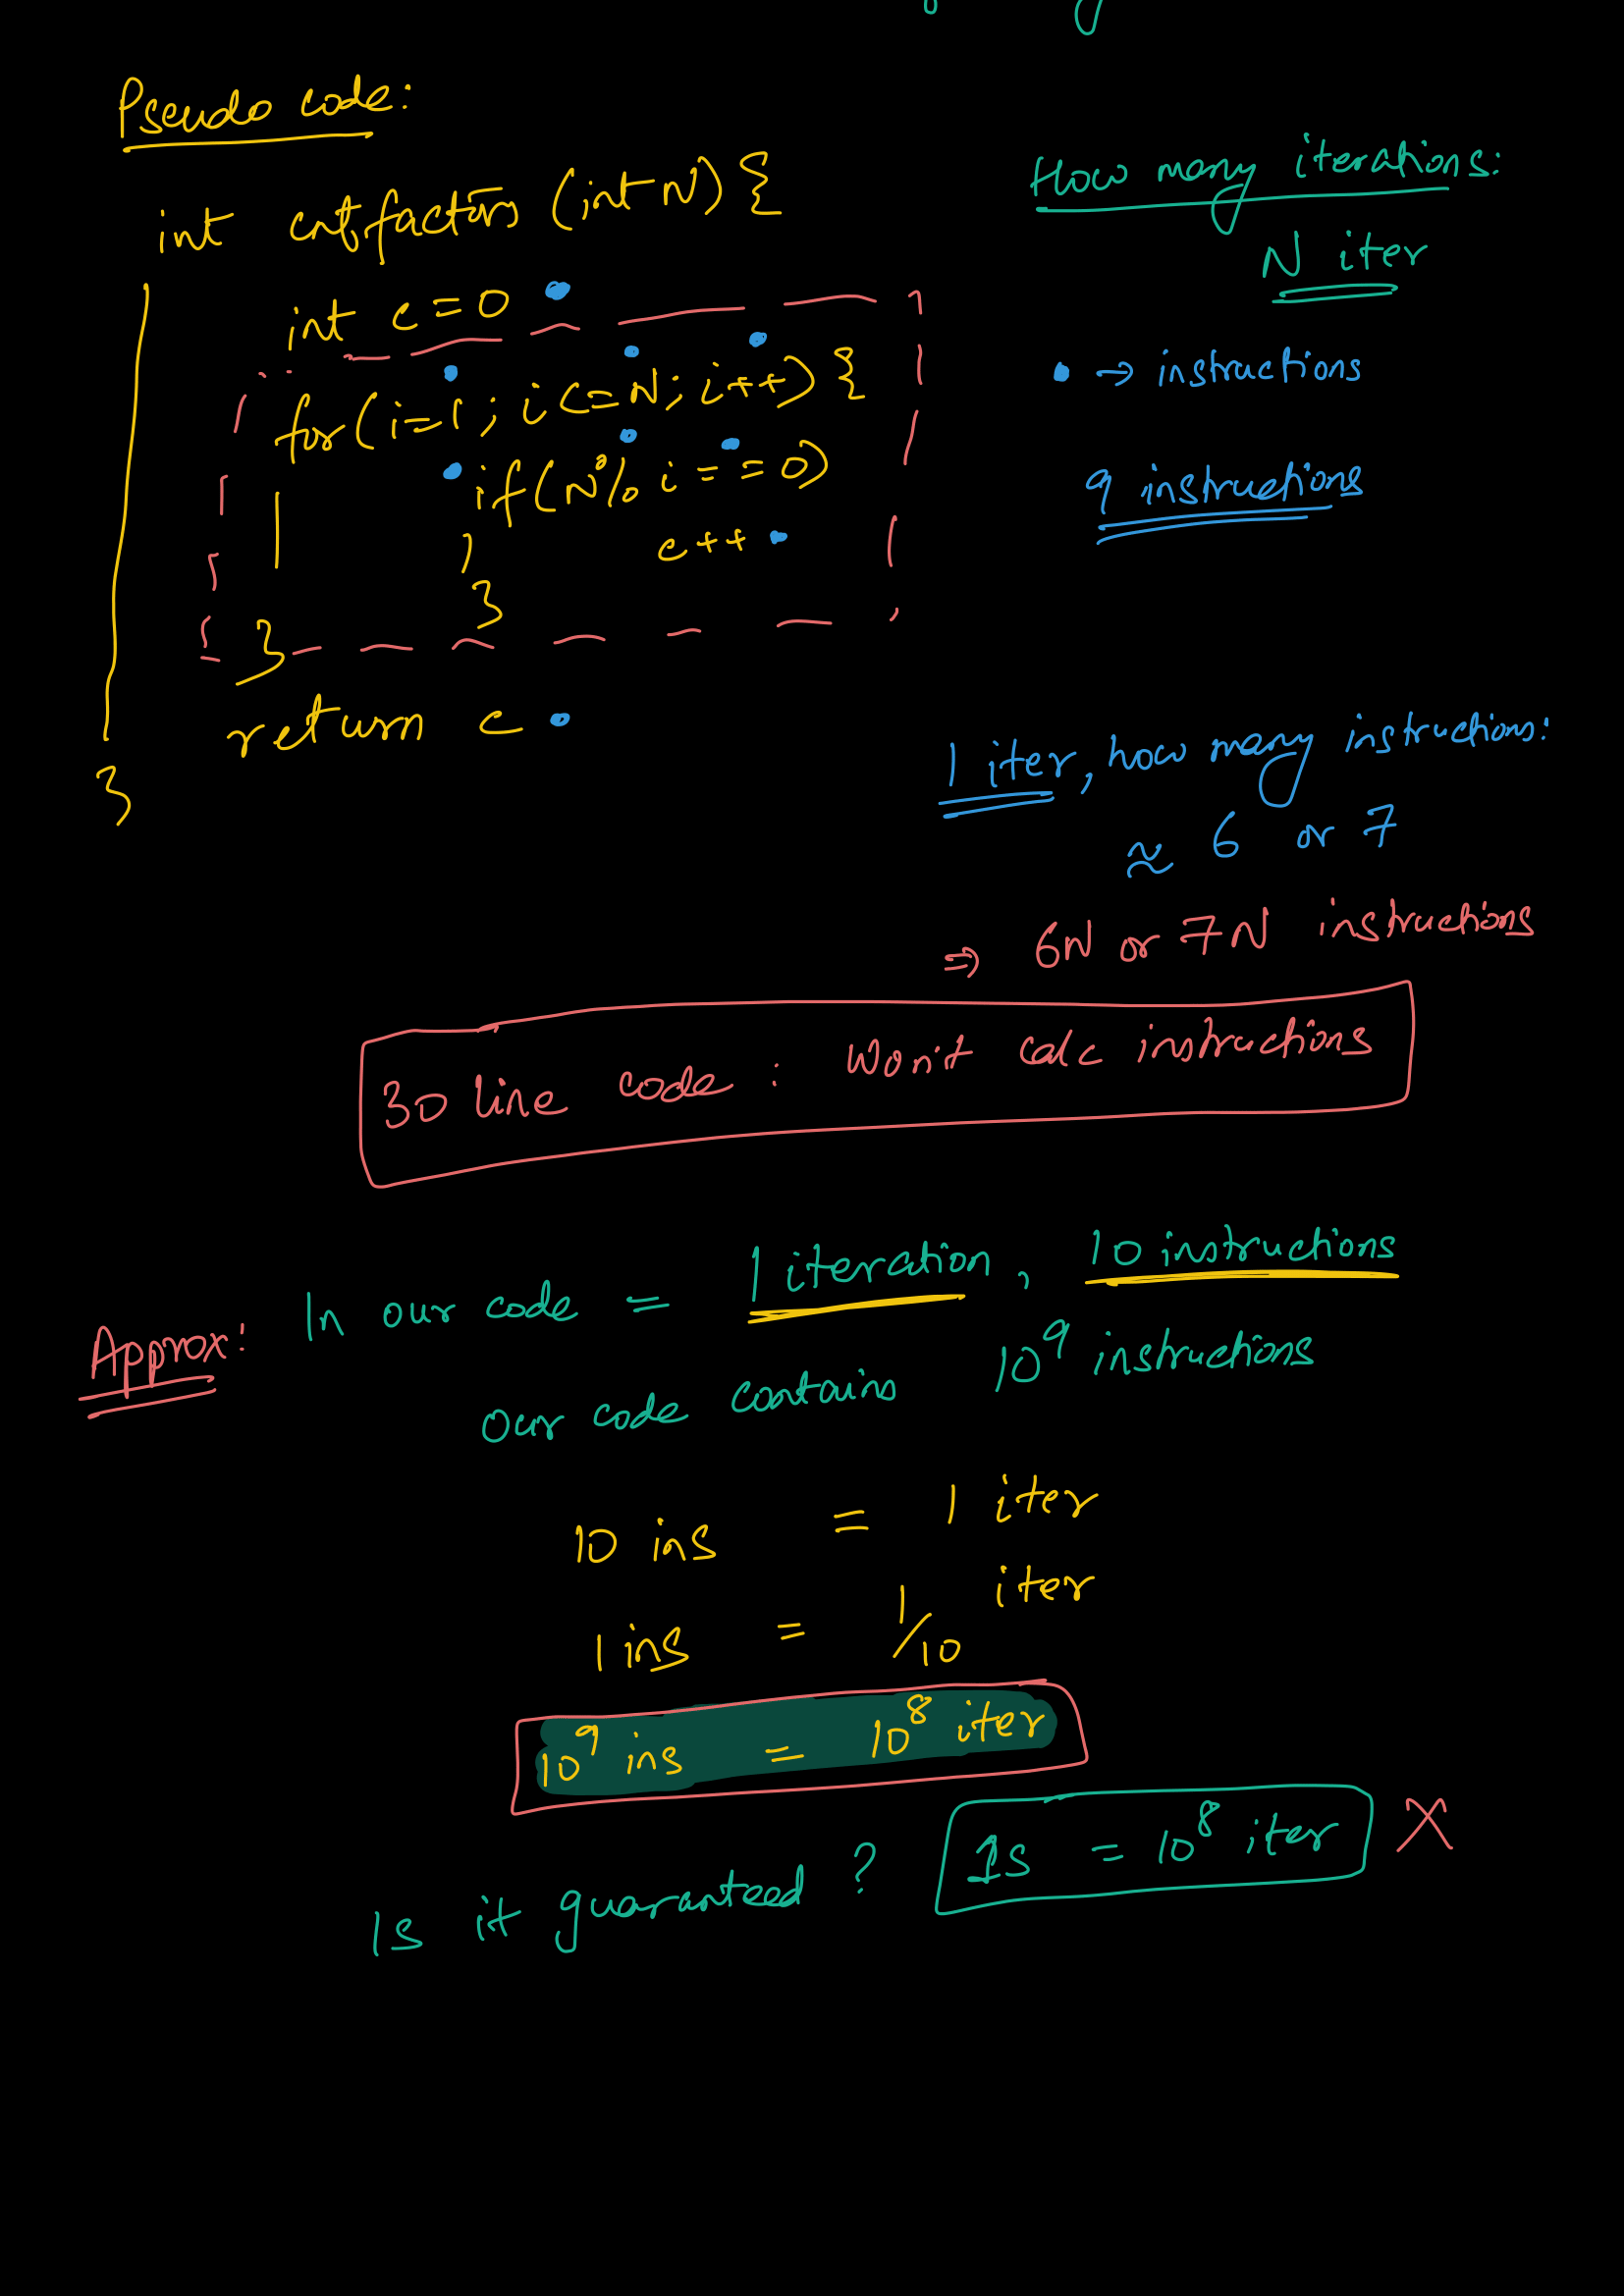 Pseudo code:
int cntfactors (int N) {
int c = 0
for (i=1; i<=N; i++) {
if (N% i == 0)
c++
}
}
return c
}
How many iterations:
N iter
• → instructions
9 instructions
1 iter, how many instructions:
≈ 6 or 7
⇒ 6N or 7N instructions
30 line code : Won't calc instructions
Approx: In our code = 1 iteration, 10 instructions
our code contains 10⁹ instructions
10 ins = 1 iter
1 ins = 1/10 iter
10⁹ ins = 10⁸ iter
Is it guaranteed ? 1s = 10⁸ iter X